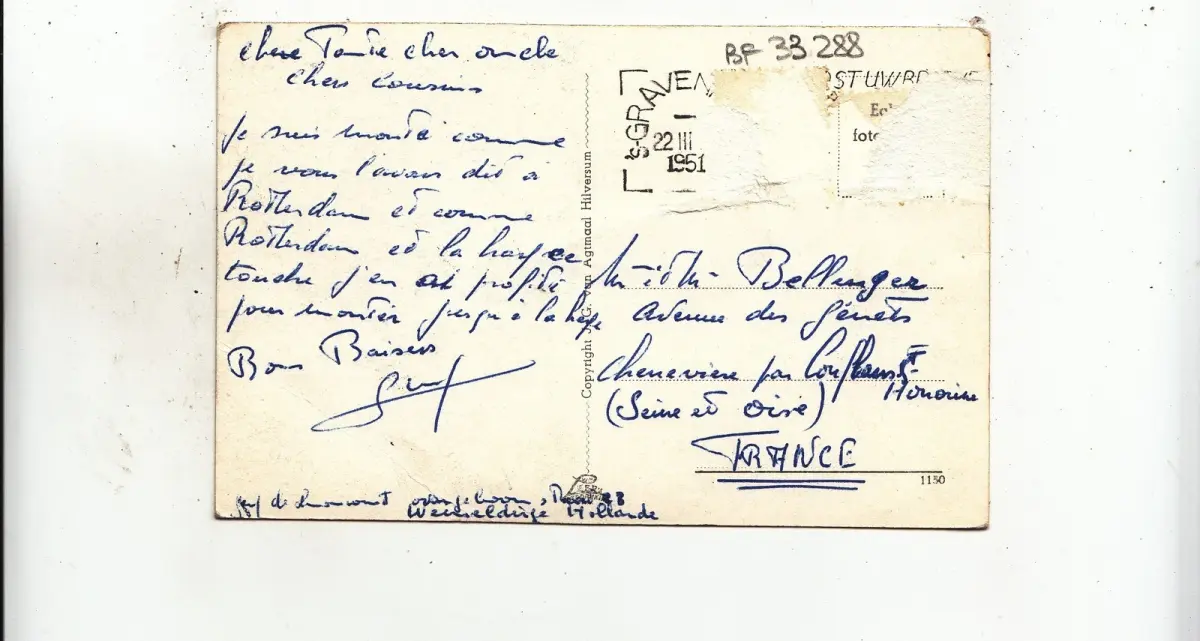 chere Tante cher oncle
chers cousins
Je suis monté comme
je vous l'avais dit à
Rotterdam et comme
Rotterdam et la haye se
touche j'en ai profité
pour monter jusqu'à la haye
Bons Baisers
BF 33 288
's-GRAVEN
22 III
1951
POST UW BR
foto
Copyright J. C. van Agtmaal Hilversum
Mr et Mme Bellenger
Avenue des Genêts
Chenevière par Conflans Ste
Honorine
(Seine et Oise)
FRANCE
1150
Hollande